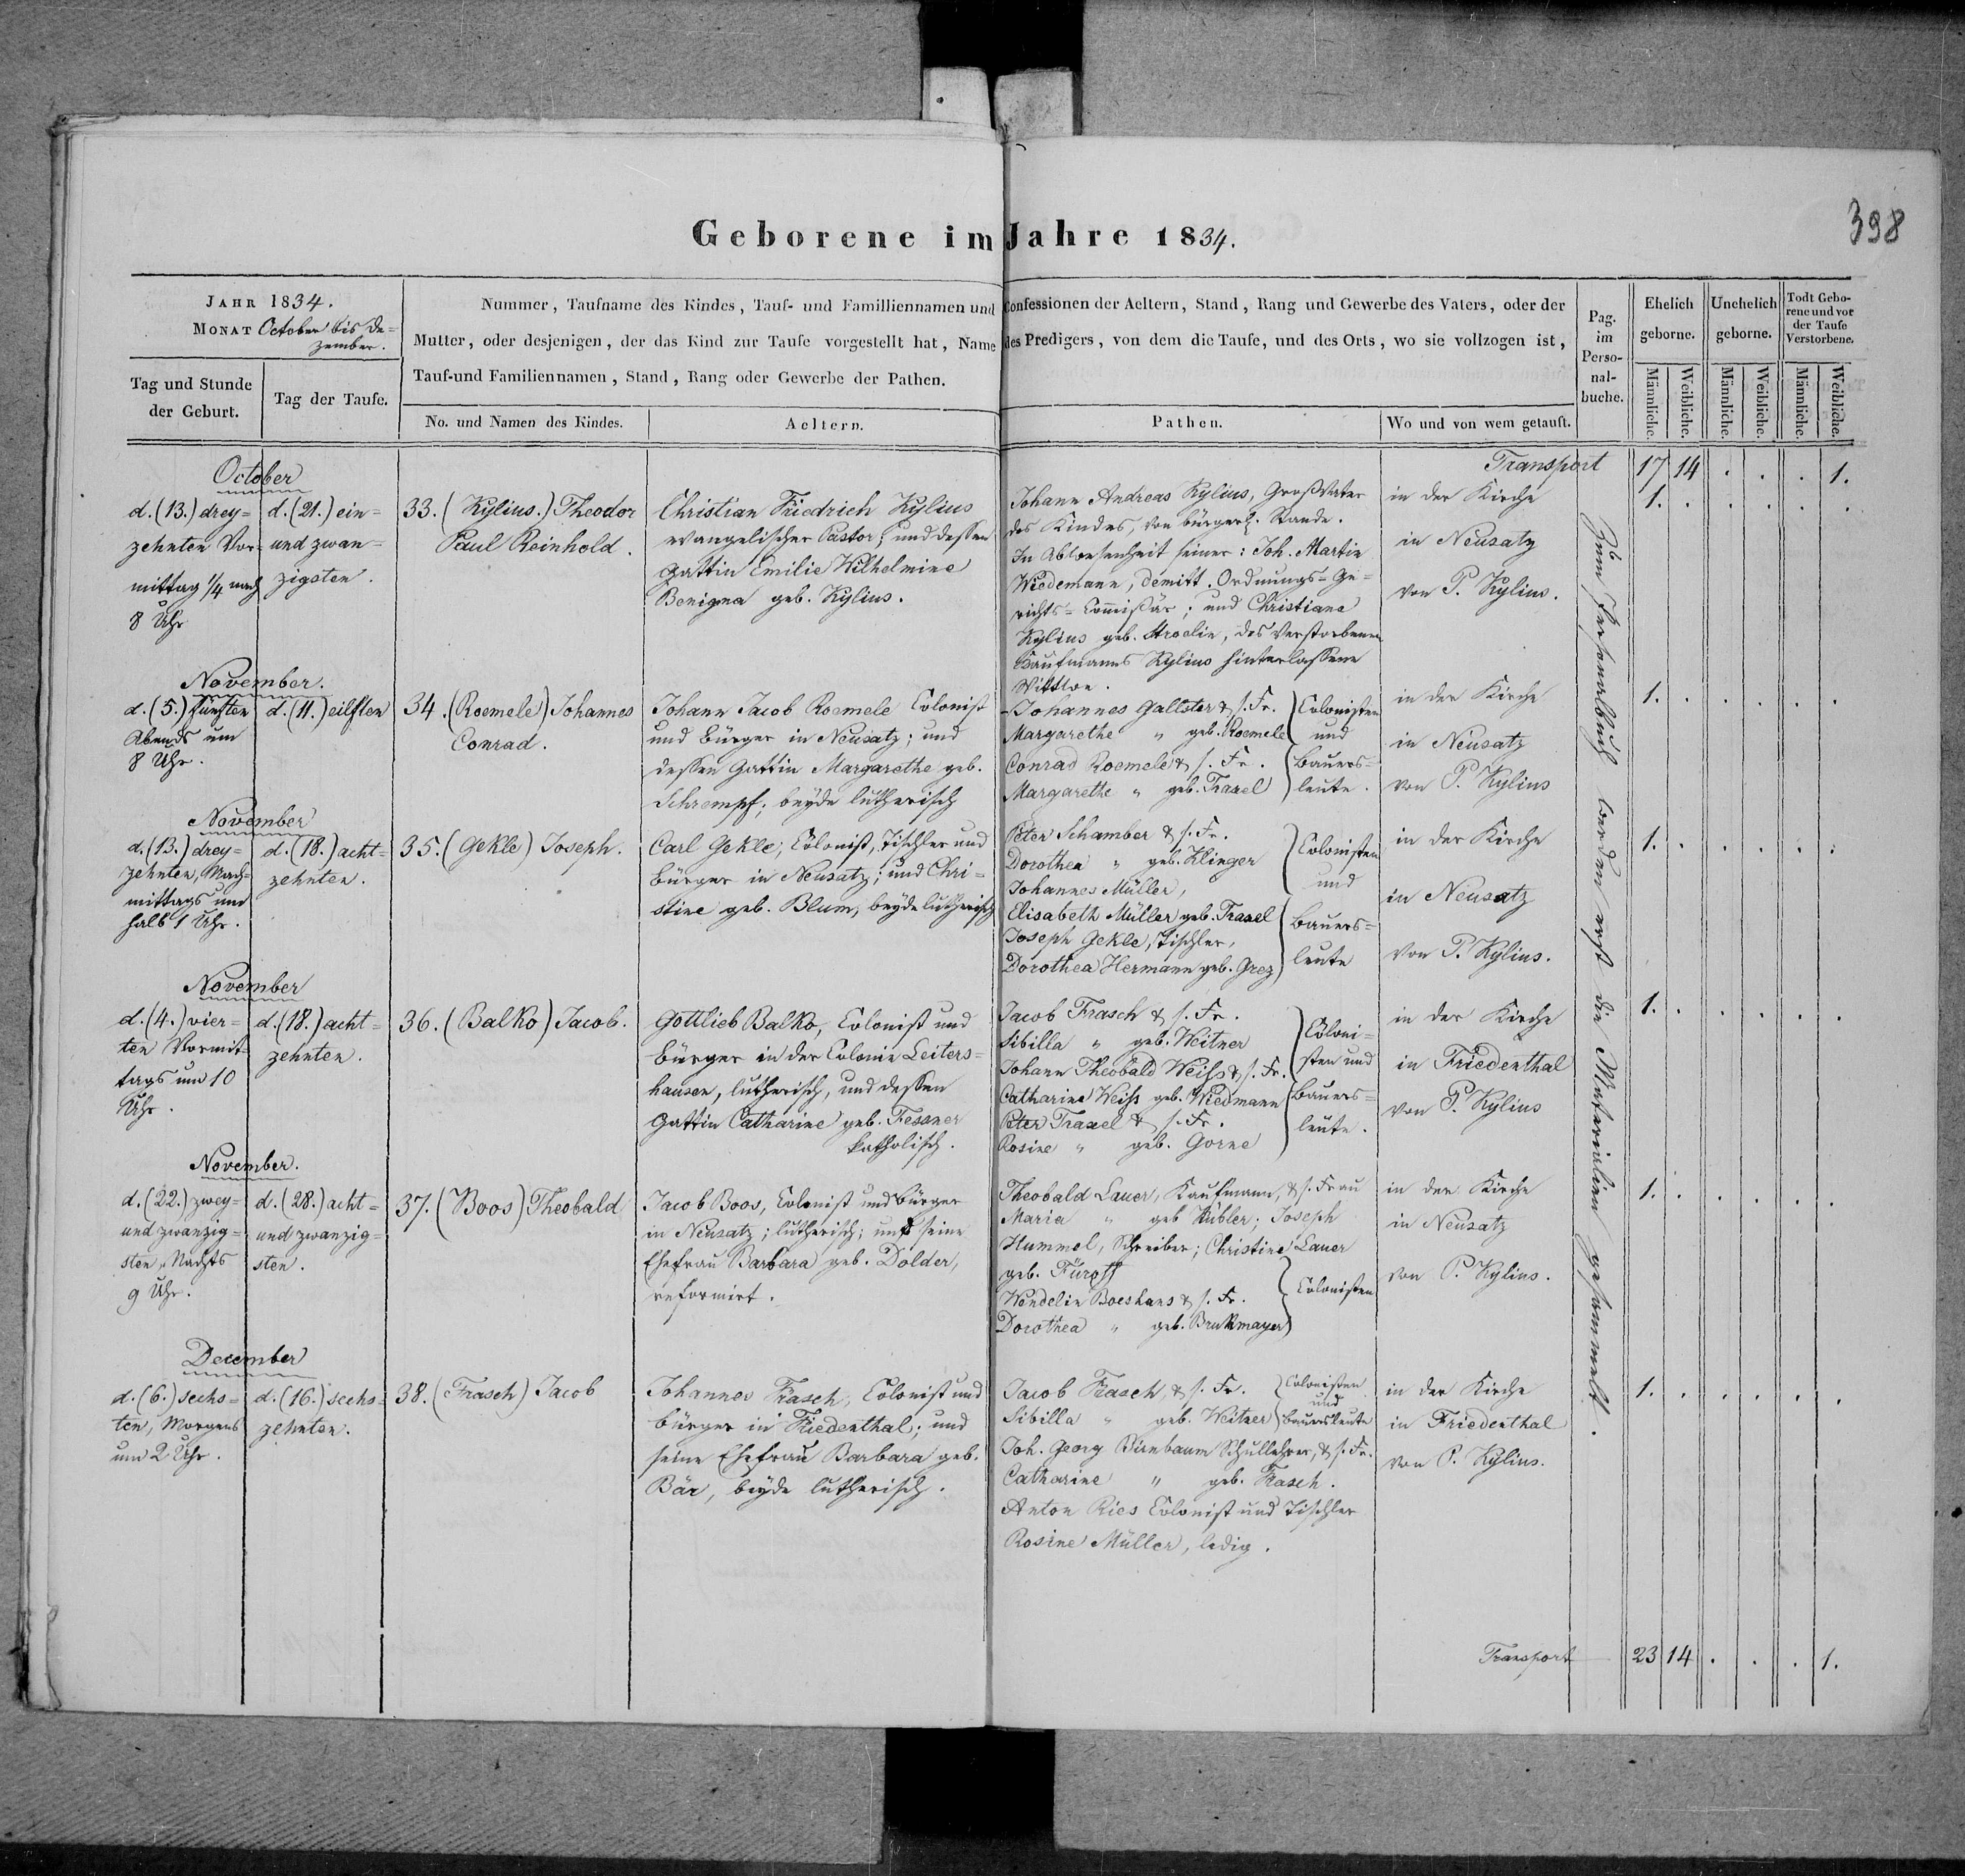 398
Geborene im Jahre 1834.
JAHR 1834.
MONAT October bis De=
zember.
Tag und Stunde
der Geburt.
Tag der Taufe.
Nummer, Taufname des Kindes, Tauf- und Familliennamen und Confessionen der Aeltern, Stand, Rang und Gewerbe des Vaters, oder der
Mutter, oder desjenigen, der das Kind zur Taufe vorgestellt hat, Name des Predigers, von dem die Taufe, und des Orts, wo sie vollzogen ist,
Tauf-und Familiennamen, Stand, Rang oder Gewerbe der Pathen.
No. und Namen des Kindes.
Aeltern.
Pathen.
Wo und von wem getauft.
Pag.
im
Perso-
nal-
buche.
Ehelich
geborne.
Unehelich
geborne.
Todt Gebo-
rene und vor
der Taufe
Verstorbene.
Männliche.
Weibliche.
Männliche.
Weibliche.
Männliche.
Weibliche.
Transport 17 14 . . . 1.
October
d. (13.) drey=
zehnten Vor=
mittag 1/4 nach
8 Uhr
d. (21.) ein=
und zwan=
zigsten.
33. (Kylius.) Theodor
Paul Reinhold.
Christian Friedrich Kylius
evangelischer Pastor; und dessen
Gattin Emilie Wilhelmine
Benigna geb. Kylius.
Johann Andreas Kylius, Großvater
des Kindes, von bürgerl. Stande.
In Abwesenheit seiner: Joh. Martin
Wiedemann, demitt. Ordnungs=Ge=
richts=Commißär; und Christiane
Kylius geb. Stroelin, des verstorbenen
Kaufmanns Kylius hinterlassene
Wittwe.
in der Kirche
in Neusatz
von P. Kylius.
1. . . . . .
November.
d. (5.) fünften
Abends um
8 Uhr.
d. (11.) eilften
34. (Roemele) Johannes
Conrad.
Johann Jacob Roemele Colonist
und Bürger in Neusatz; und
dessen Gattin Margarethe geb.
Schrempf; beyde lutherisch
Johannes Gallster & s. Fr.
Margarethe " geb. Roemele
Conrad Roemele & s. Fr.
Margarethe " geb. Traxel
Colonisten
und
Bauers=
leute.
in der Kirche
in Neusatz
von P. Kylius
1. . . . . .
November
d. (13.) drey=
zehnten, Nach=
mittags um
halb 1 Uhr.
d. (18.) acht=
zehnten.
35. (Gekle) Joseph.
Carl Gekle; Colonist, Tischler und
Bürger in Neusatz; und Chri=
stine geb. Blum, beyde lutherisch
Peter Schamber & s. Fr.
Dorothea " geb. Klinger
Johannes Müller,
Elisabeth Müller geb. Traxel
Joseph Gekle, Tischler,
Dorothea Hermann geb. Grez
Colonisten
und
Bauers=
leute
in der Kirche
in Neusatz
von P. Kylius.
1. . . . . .
November
d. (4.) vier=
ten Vormit=
tags um 10
Uhr.
d. (18.) acht=
zehnten.
36. (Balko) Jacob.
Gottlieb Balko, Colonist und
Bürger in der Colonie Leiters=
hausen, lutherisch, und dessen
Gattin Catharine geb. Fessner
katholisch.
Jacob Frasch & s. Fr.
Sibilla " geb. Weitner
Johann Theobald Weiss & s. Fr.
Catharine Weiss geb. Wiedmann
Peter Traxel & s. Fr.
Rosine " geb. Gorne
Coloni=
sten und
Bauers=
leute.
in der Kirche
in Friedenthal
von P. Kylius
1. . . . . .
November.
d. (22.) zwey=
und zwanzig=
sten, Nachts
9 Uhr.
d. (28.) acht=
und zwanzig=
sten.
37. (Boos) Theobald
Jacob Boos, Colonist und Bürger
in Neusatz; lutherisch; und seine
Ehefrau Barbara geb. Dolder,
reformirt.
Theobald Lauer, Kaufmann, & s. Frau
Maria " geb Kübler; Joseph
Hummel, Schreiber; Christine Lauer
geb. Fürost
Wendelin Boeshans & s. Fr.
Dorothea " geb. Brukmayer
Colonisten
in der Kirche
in Neusatz
von P. Kylius.
1. . . . . .
December
d. (6.) sechs=
ten, Morgens
um 2 Uhr.
d. (16.) sechs=
zehnten.
38. (Frasch) Jacob
Johannes Frasch, Colonist und
Bürger in Friedenthal; und
seine Ehefrau Barbara geb.
Bär, beyde lutherisch.
Jacob Frasch & s. Fr.
Sibilla " geb. Weitner
Colonisten
und
Bauersleute
Joh. Georg Birnbaum Schullehrer, & s. Fr.
Catharine " geb. Frasch.
Anton Ries Colonist und Tischler
Rosine Müller, ledig.
in der Kirche
in Friedenthal
von P. Kylius.
1. . . . . .
Zum Personalbuch werden erst die Materialien gesammelt.
Transport 23 14 . . . 1.